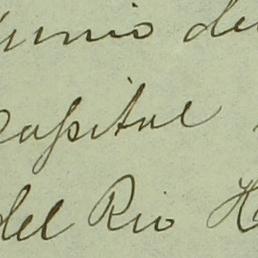 Junio de
Capital
del Rio H